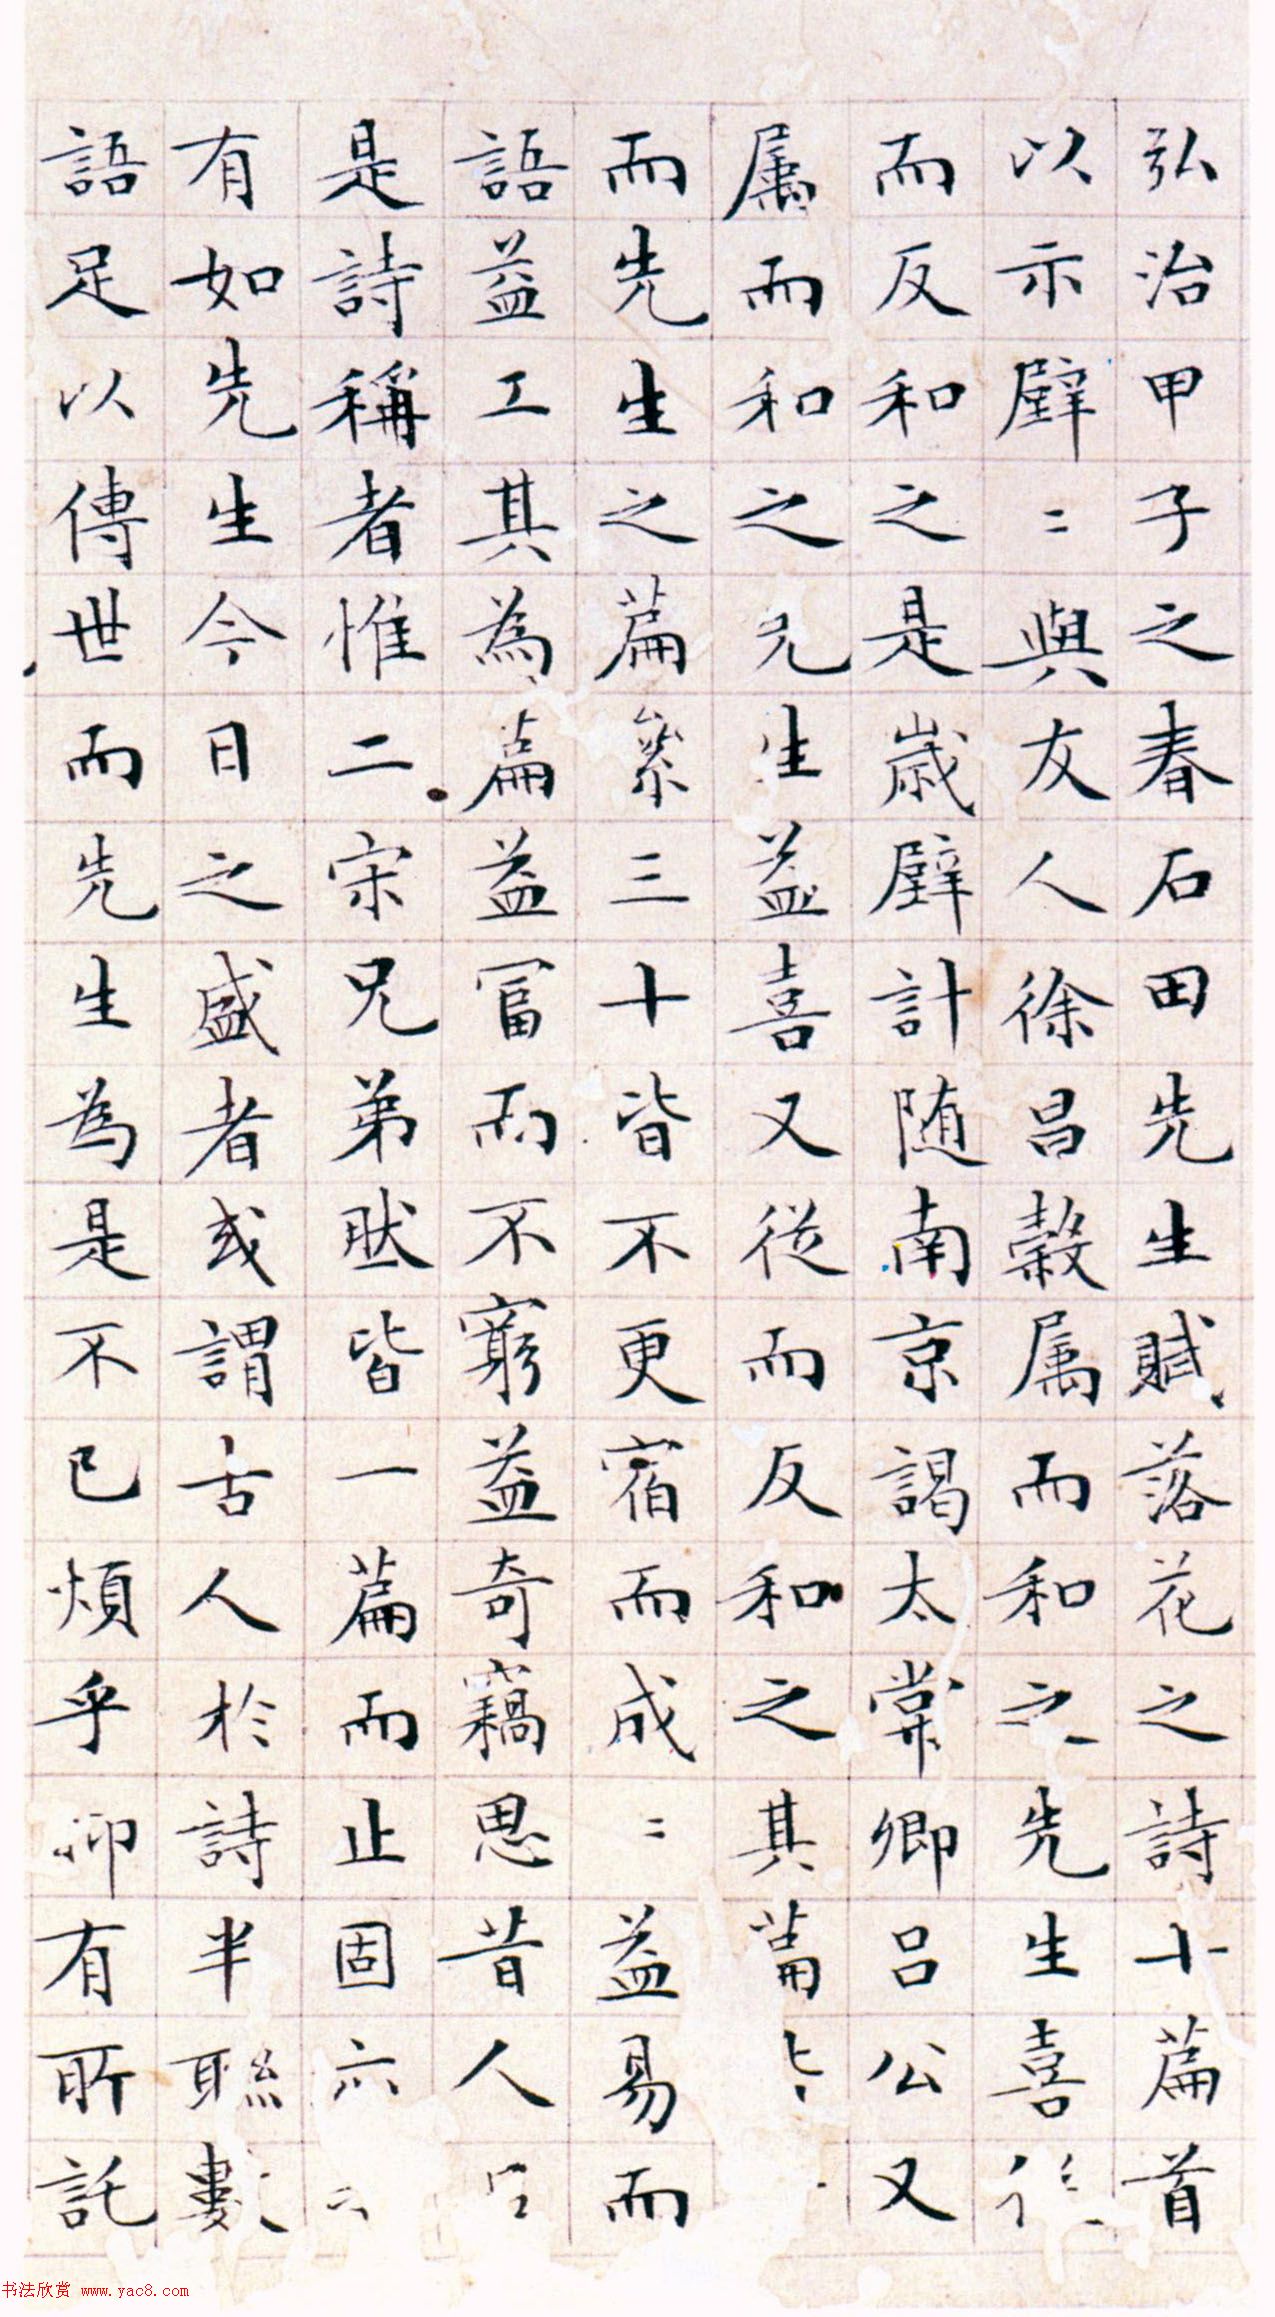 弘治甲子之春石田先生賦落花之詩十篇首
以示璧〻與友人徐昌穀属而和之先生喜從
而反和之是歳璧計随南京謁太常卿吕公又
属而和之先生益喜又從而反和之其篇皆
而先生之篇累三十皆不更宿而成〻益易而
語益工其為篇益冨而不窮益奇竊思昔人
是詩稱者惟二宋兄弟然皆一篇而止固六
有如先生今日之盛者或謂古人於詩半聮數
語足以傳世而先生為是不已煩乎抑有所託
书法欣赏 www.yac8.com